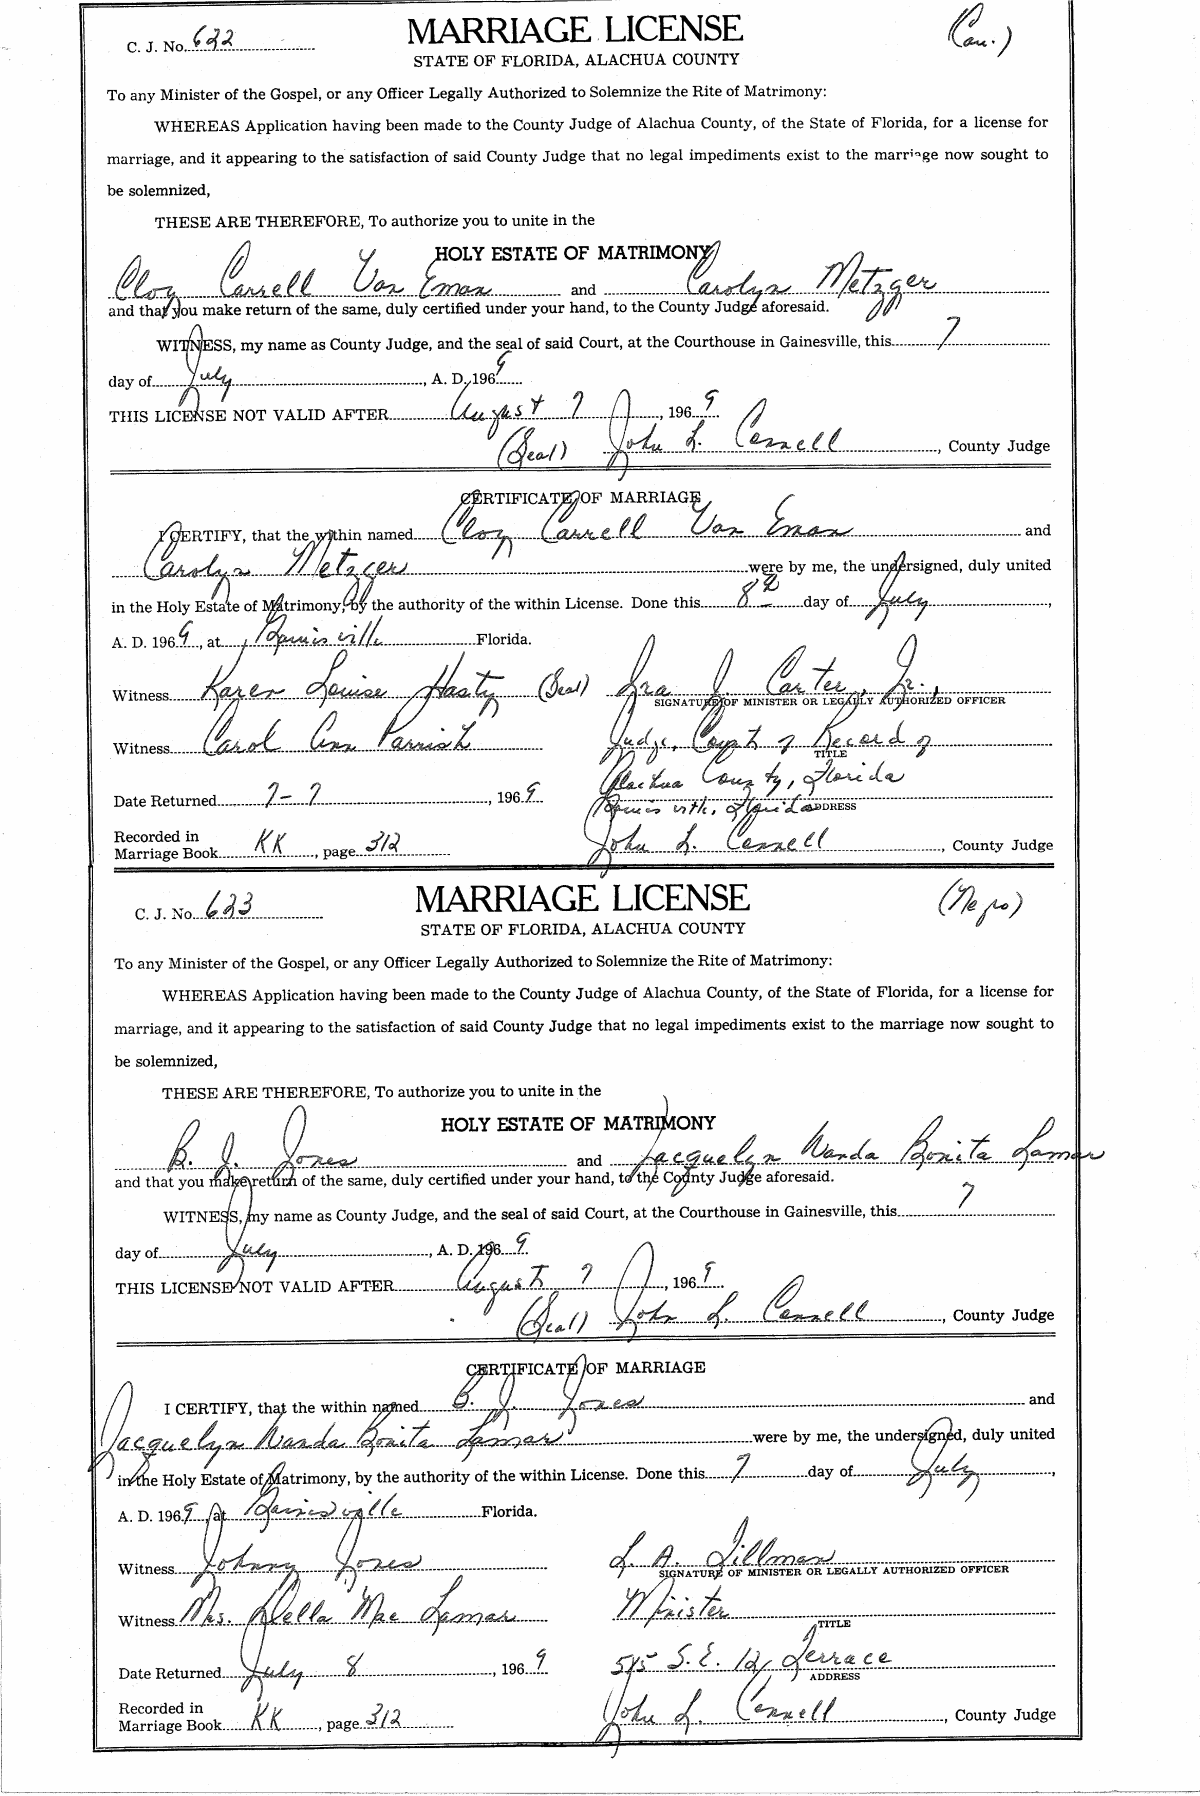 C. J. No. 632
MARRIAGE LICENSE
(Cau.)
STATE OF FLORIDA, ALACHUA COUNTY
To any Minister of the Gospel, or any Officer Legally Authorized to Solemnize the Rite of Matrimony:
WHEREAS Application having been made to the County Judge of Alachua County, of the State of Florida, for a license for
marriage, and it appearing to the satisfaction of said County Judge that no legal impediments exist to the marriage now sought to
be solemnized,
THESE ARE THEREFORE, To authorize you to unite in the
HOLY ESTATE OF MATRIMONY
Cloy Carrell Van Eman and Carolyn Metzger
and that you make return of the same, duly certified under your hand, to the County Judge aforesaid.
WITNESS, my name as County Judge, and the seal of said Court, at the Courthouse in Gainesville, this 7
day of July, A. D. 1969
THIS LICENSE NOT VALID AFTER August 7, 1969
(Seal) John L. Connell, County Judge
CERTIFICATE OF MARRIAGE
I CERTIFY, that the within named Cloy Carrell Van Eman and
Carolyn Metzger were by me, the undersigned, duly united
in the Holy Estate of Matrimony, by the authority of the within License. Done this 8th day of July,
A. D. 1969, at Gainesville Florida.
Witness Karen Louise Hasty (Seal) Ira J. Carter, Jr.,
SIGNATURE OF MINISTER OR LEGALLY AUTHORIZED OFFICER
Witness Carol Ann Parrish Judge, Court of Record of
TITLE
Alachua County, Florida
Date Returned 7-7, 1969 Gainesville, Florida
ADDRESS
Recorded in
Marriage Book KK, page 312 John L. Connell, County Judge
C. J. No. 633
MARRIAGE LICENSE
(Negro)
STATE OF FLORIDA, ALACHUA COUNTY
To any Minister of the Gospel, or any Officer Legally Authorized to Solemnize the Rite of Matrimony:
WHEREAS Application having been made to the County Judge of Alachua County, of the State of Florida, for a license for
marriage, and it appearing to the satisfaction of said County Judge that no legal impediments exist to the marriage now sought to
be solemnized,
THESE ARE THEREFORE, To authorize you to unite in the
HOLY ESTATE OF MATRIMONY
B. J. Jones and Jacquelyn Wanda Bonita Lamar
and that you make return of the same, duly certified under your hand, to the County Judge aforesaid.
WITNESS, my name as County Judge, and the seal of said Court, at the Courthouse in Gainesville, this 7
day of July, A. D. 1969.
THIS LICENSE NOT VALID AFTER August 7, 1969
(Seal) John L. Connell, County Judge
CERTIFICATE OF MARRIAGE
I CERTIFY, that the within named B. J. Jones and
Jacquelyn Wanda Bonita Lamar were by me, the undersigned, duly united
in the Holy Estate of Matrimony, by the authority of the within License. Done this 7 day of July,
A. D. 1969, at Gainesville Florida.
Witness Johnny Jones L. A. Tillman
SIGNATURE OF MINISTER OR LEGALLY AUTHORIZED OFFICER
Witness Mrs. Della Mae Lamar Minister
TITLE
Date Returned July 8, 1969 515 S.E. 12, Terrace
ADDRESS
Recorded in
Marriage Book KK, page 312 John L. Connell, County Judge